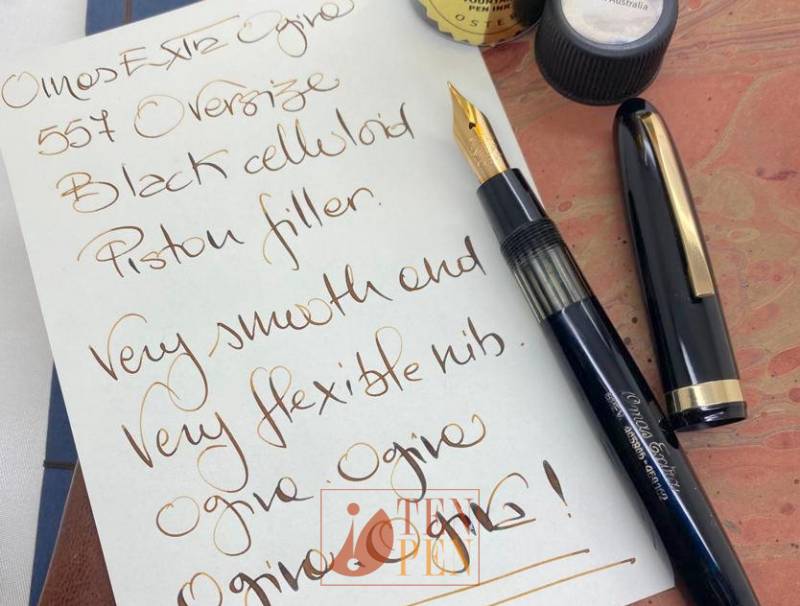 Omas Extra Ogiva
557 Oversize
Black celluloid
Piston filler.
Very smooth and
Very flexible nib.
Ogiva. Ogiva
Ogiva. Ogiva!
TEN
PEN
PEN INK
OSTE
Australia
Omas Extra